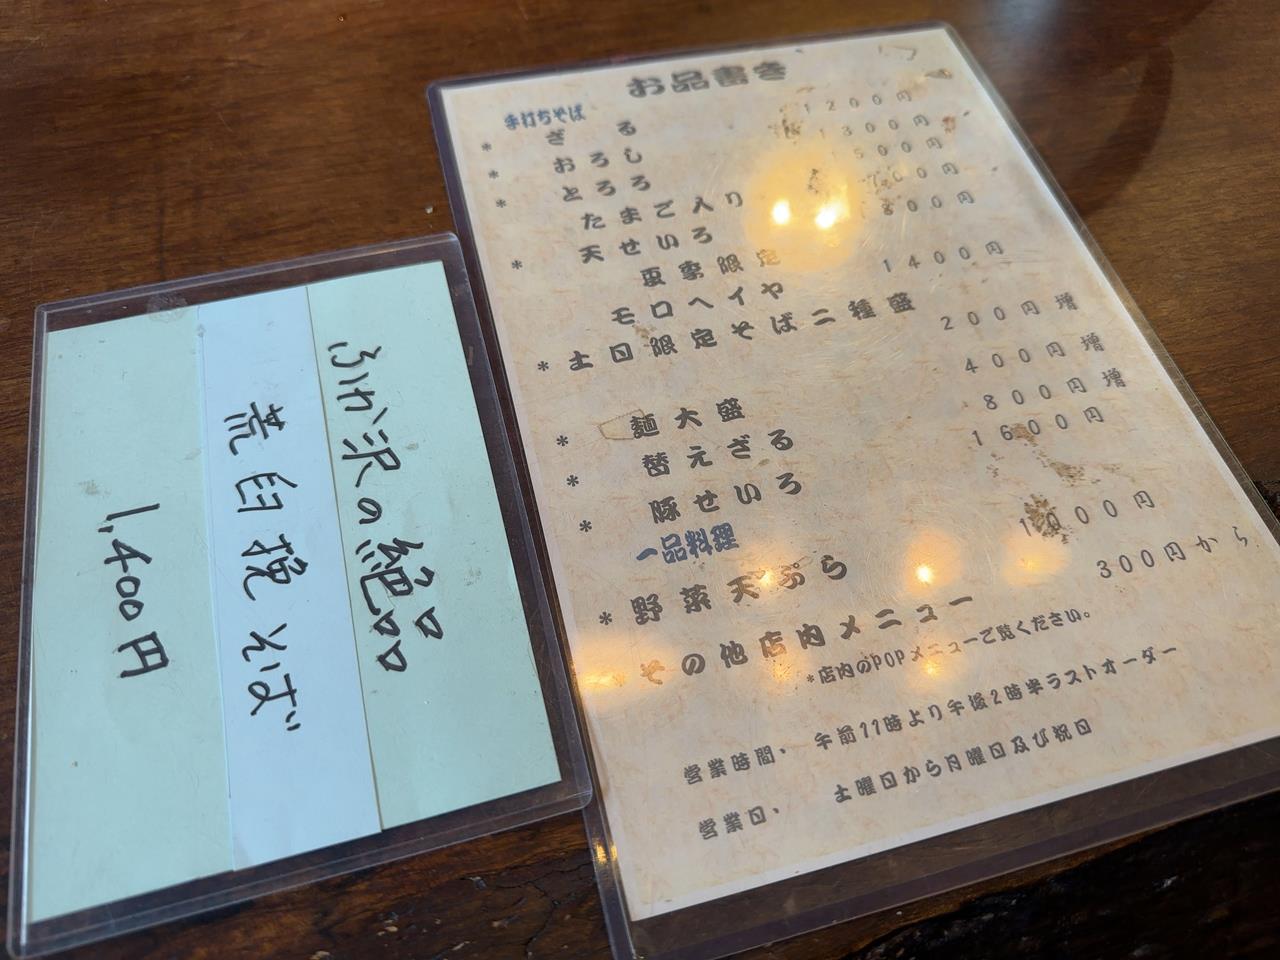 ふか沢の絶品
荒臼挽そば
1,400円
お品書き
手打ちそば
* ざる 1200円
* おろし 1300円
* とろろ 500円
たまご入り 700円
* 天せいろ 800円
夏季限定
モロヘイヤ 1400円
* 土日限定そば二種盛
* 麺大盛 200円増
* 替えざる 400円増
* 豚せいろ 800円増
1600円
一品料理
* 野菜天ぷら 1000円
その他店内メニュー 300円から
*店内のPOPメニューご覧ください。
営業時間、 午前11時より午後2時半ラストオーダー
営業日、 土曜日から月曜日及び祝日